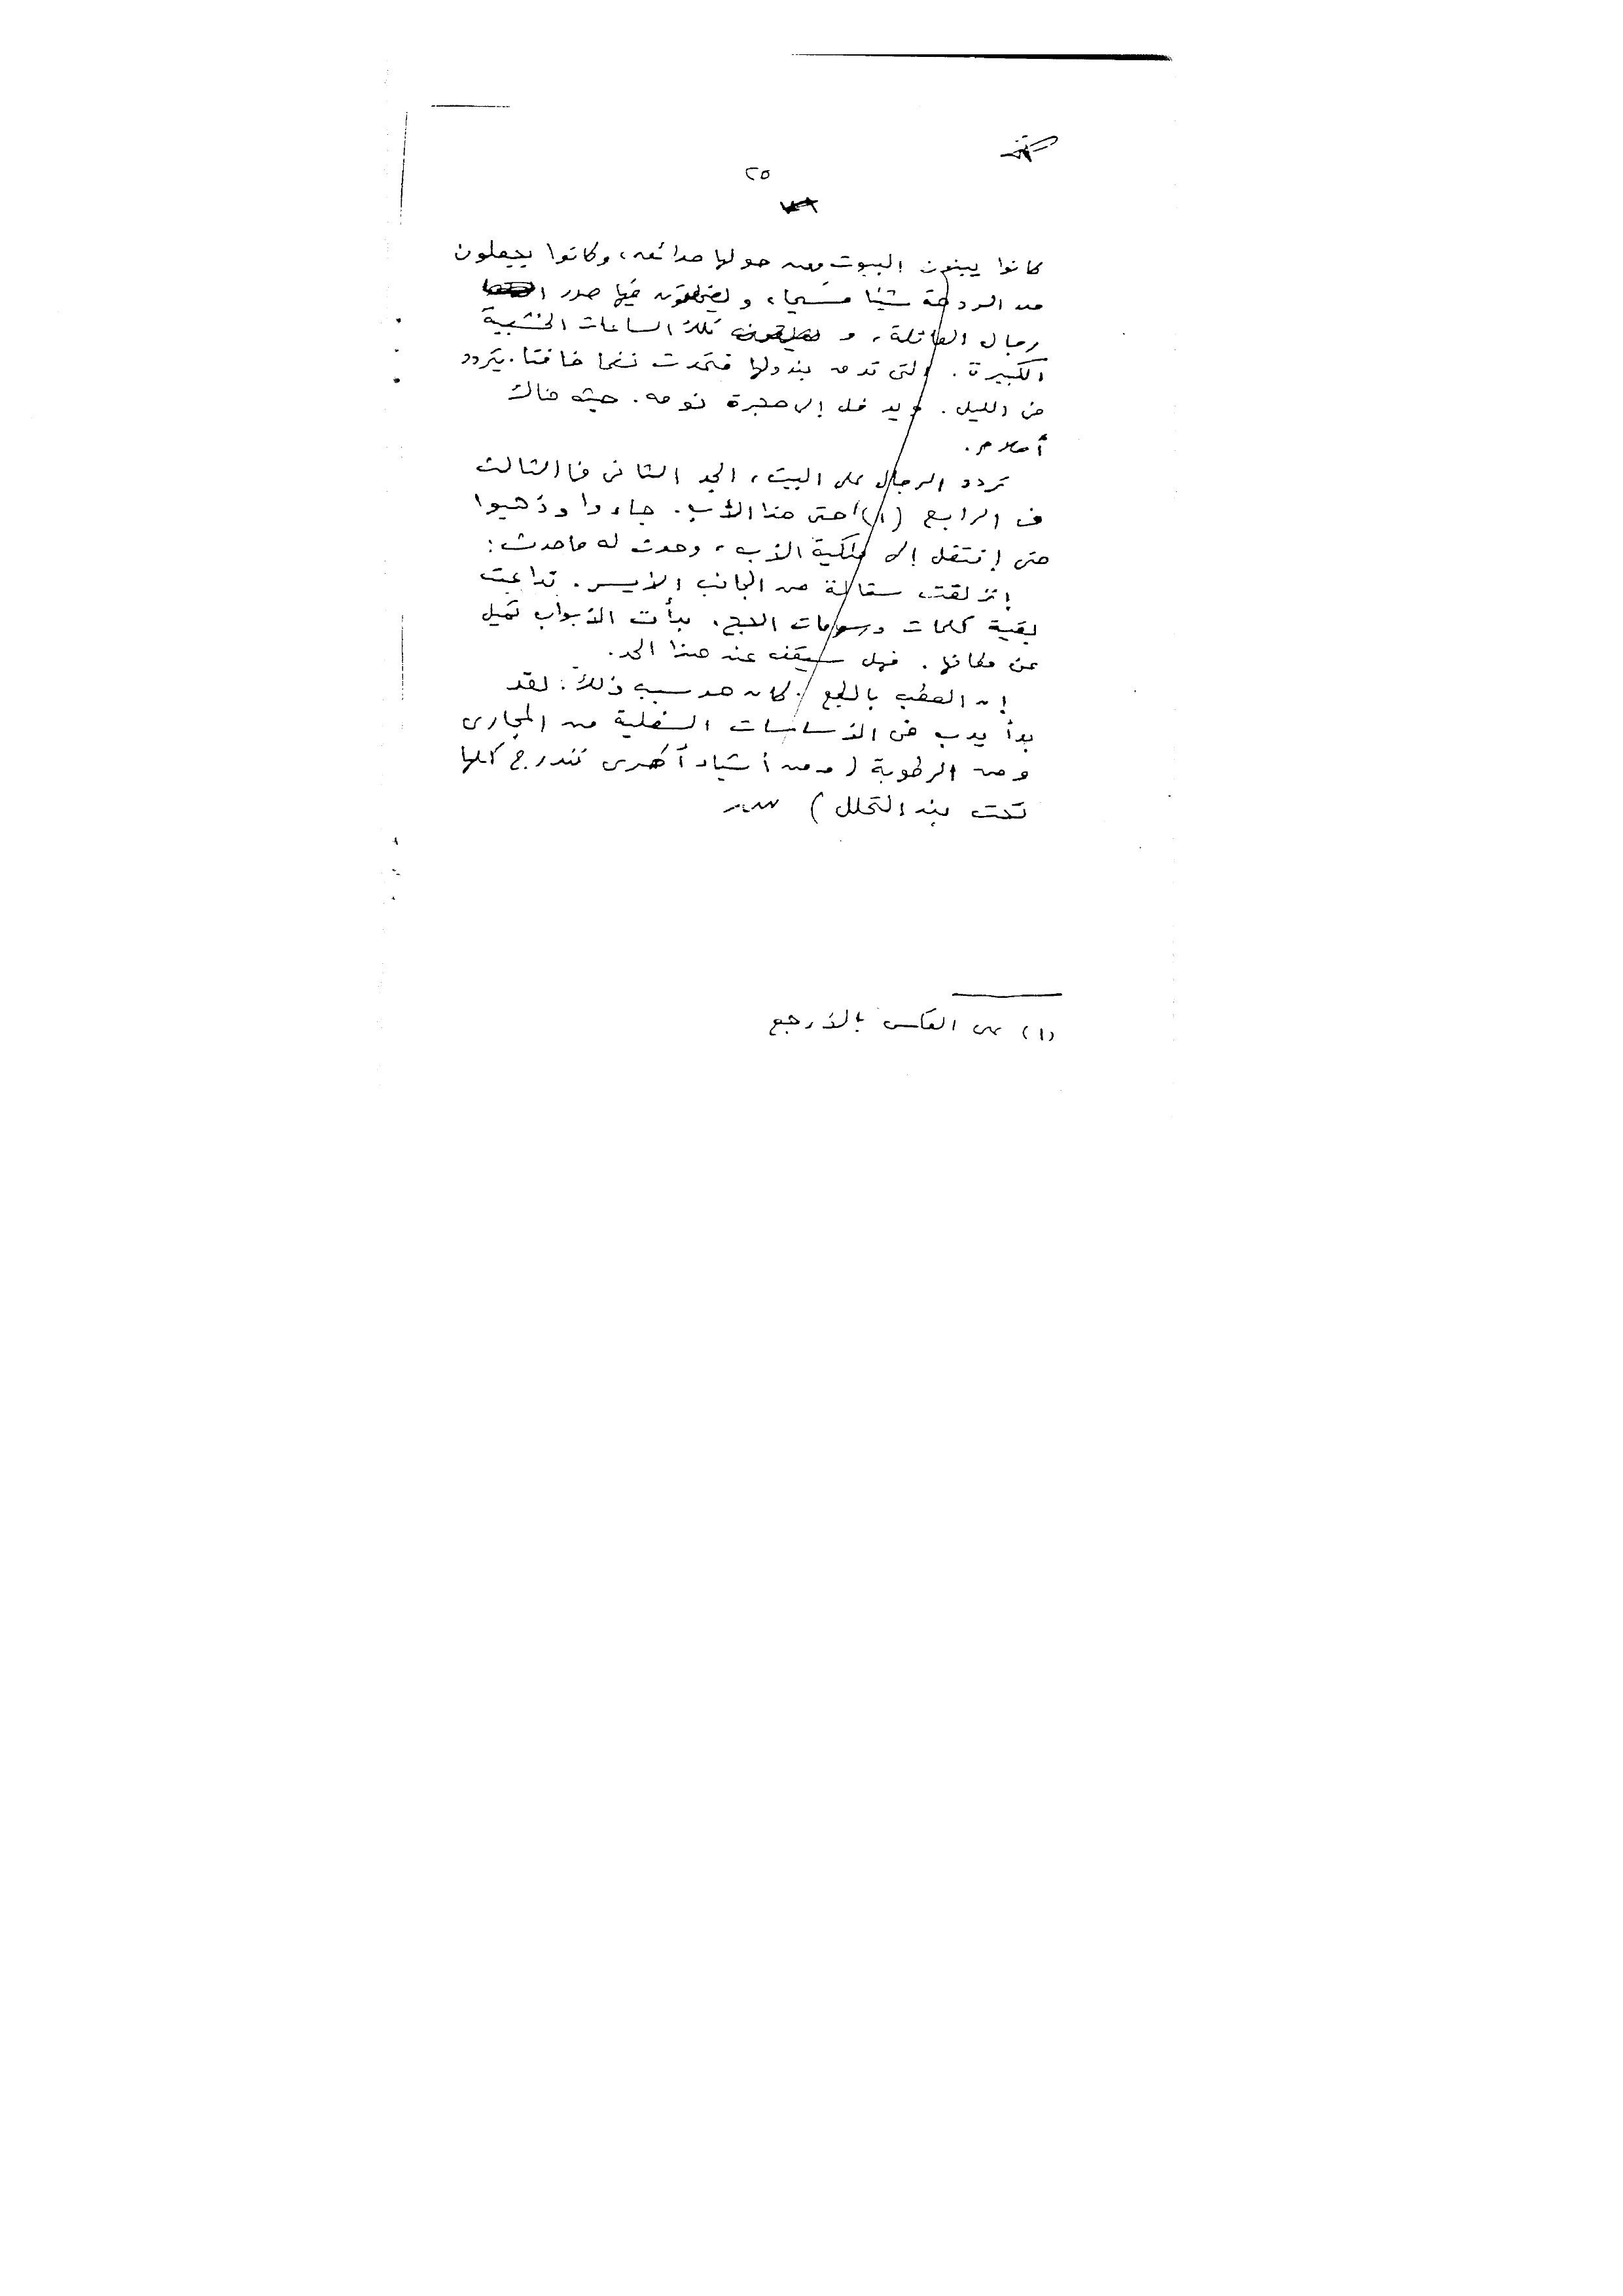 ٢٥
كانوا يبنون البيوت ومن حولها حدائق، وكانوا يجعلون
من الردهة شيئا فسيحا، ويعلقون فيها صور
رجال العائلة، و تلك الساعات الخشبية
الكبيرة. التى تدق بندولها فتحدث نغما خافتا. يتردد
فى الليل. ويدخل إلى حجرة نومه. حيث هناك
أحلام.
تردد الرجال على البيت، الجد الثانى فالثالث
فـ الرابع (١) حتى هذا الأب. جاءوا وذهبوا
حتى إنتقل إلى ملكية الأب، وحدث له ماحدث:
إنزلقت سقالة من الجانب الأيسر. تداعت
بقية كلمات ورسومات الحج. بدأت الأبواب تميل
عن مكانها. فهل سيقف عند هذا الحد.
إن العطب بالطبع كان هو سبب ذلك: لقد
بدأ يدب فى الأساسات السفلية من المجارى
ومن الرطوبة (ومن أشياء أخرى تندرج كلها
تحت بند التحلل)
(١) على العكس بالأرجع